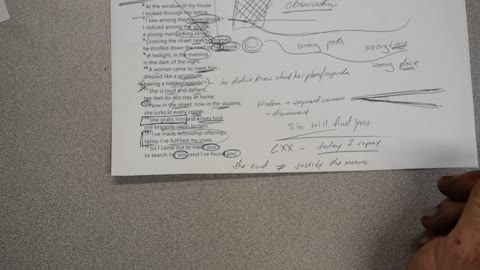 ⁶ At the window of my house
I looked through my lattice.
⁷ I saw among the
I noticed among the
a young man
⁸ Crossing the street near
he strolled down the road to
⁹ at twilight, in the evening,
in the dark of the night.
¹⁰ A woman came to meet him
dressed like a prostitute,
having a hidden agenda.
¹¹ She is loud and defiant,
her feet do not stay at home.
¹² Now in the street, now in the squares,
she lurks at every corner.
¹³ She grabs him and kisses him,
she brazenly says to him,
¹⁴ I've made fellowship offerings;
today I've fulfilled my vows.
¹⁵ So I came out to meet you,
to search for you, and I've found you!
observation
wrong path
wrong
wrong place
he didn't know what her plan/agenda
wisdom = wayward woman
sin will find you
LXX - today I repay
the end ≠ justify the means